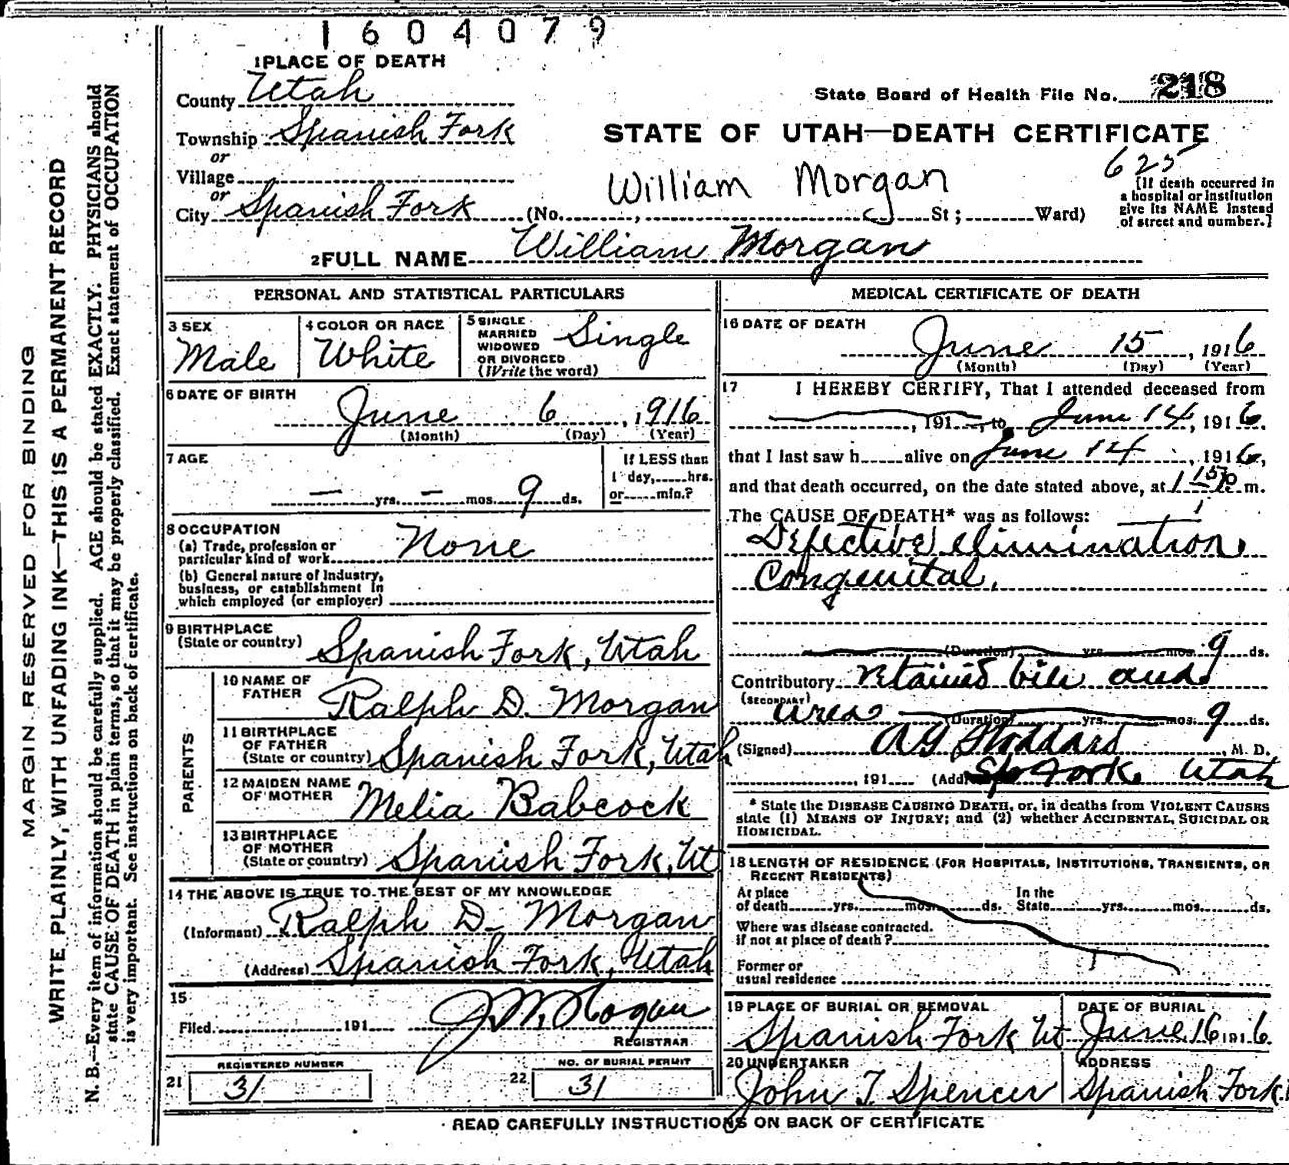 1604079
1 PLACE OF DEATH
County Utah
State Board of Health File No. 218
Township Spanish Fork
STATE OF UTAH—DEATH CERTIFICATE
or
Village
625
William Morgan
[If death occurred in
a hospital or institution
give its NAME instead
of street and number.]
or
City Spanish Fork (No. , St; Ward)
2 FULL NAME William Morgan
PERSONAL AND STATISTICAL PARTICULARS
3 SEX
Male
4 COLOR OR RACE
White
5 SINGLE
MARRIED
WIDOWED
OR DIVORCED
(Write the word)
Single
6 DATE OF BIRTH
June 6, 1916
(Month) (Day) (Year)
7 AGE
— yrs. — mos. 9 ds.
If LESS than
1 day, hrs.
or min.?
8 OCCUPATION
(a) Trade, profession or
particular kind of work None
(b) General nature of Industry,
business, or establishment in
which employed (or employer)
9 BIRTHPLACE
(State or country) Spanish Fork, Utah
PARENTS
10 NAME OF
FATHER Ralph D. Morgan
11 BIRTHPLACE
OF FATHER
(State or country) Spanish Fork, Utah
12 MAIDEN NAME
OF MOTHER Melia Babcock
13 BIRTHPLACE
OF MOTHER
(State or country) Spanish Fork, Ut
14 THE ABOVE IS TRUE TO THE BEST OF MY KNOWLEDGE
(Informant) Ralph D. Morgan
(Address) Spanish Fork, Utah
15
Filed 191
REGISTRAR
REGISTERED NUMBER
21 31
NO. OF BURIAL PERMIT
22 31
MEDICAL CERTIFICATE OF DEATH
16 DATE OF DEATH
June 15, 1916
(Month) (Day) (Year)
17 I HEREBY CERTIFY, That I attended deceased from
, 191 , to June 14, 1916,
that I last saw h alive on June 14, 1916,
and that death occurred, on the date stated above, at m.
The CAUSE OF DEATH* was as follows:
Defective elimination
Congenital.
(Duration) yrs. mos. 9 ds.
Contributory retained bile and
(SECONDARY) Urea (Duration) yrs. mos. 9 ds.
(Signed) A G Stoddard, M. D.
, 191 (Address) Sp Fork Utah
* State the DISEASE CAUSING DEATH, or, in deaths from VIOLENT CAUSES
state (1) MEANS OF INJURY; and (2) whether ACCIDENTAL, SUICIDAL OR
HOMICIDAL.
18 LENGTH OF RESIDENCE (FOR HOSPITALS, INSTITUTIONS, TRANSIENTS, OR
RECENT RESIDENTS)
At place
of death yrs. mos. ds.
In the
State yrs. mos. ds.
Where was disease contracted,
if not at place of death?
Former or
usual residence
19 PLACE OF BURIAL OR REMOVAL
Spanish Fork Ut
DATE OF BURIAL
June 16 1916
20 UNDERTAKER
John T Spencer
ADDRESS
Spanish Fork.
READ CAREFULLY INSTRUCTIONS ON BACK OF CERTIFICATE
MARGIN RESERVED FOR BINDING
WRITE PLAINLY, WITH UNFADING INK—THIS IS A PERMANENT RECORD
N. B.—Every item of information should be carefully supplied. AGE should be stated EXACTLY. PHYSICIANS should
state CAUSE OF DEATH in plain terms, so that it may be properly classified. Exact statement of OCCUPATION
is very important. See instructions on back of certificate.